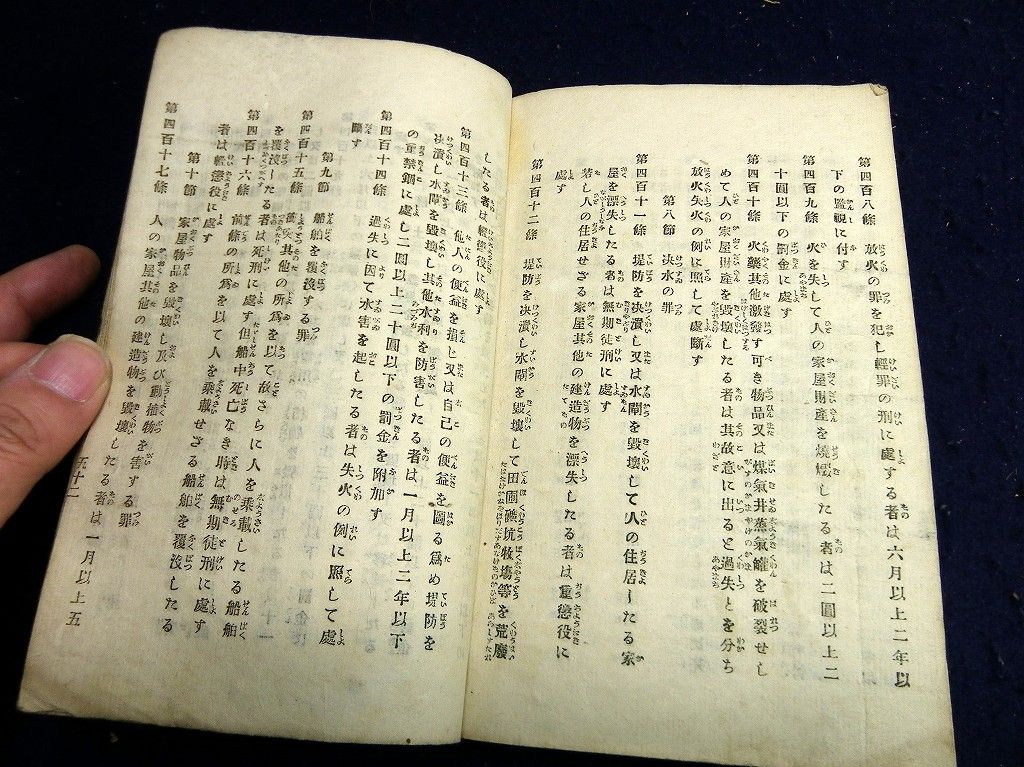 第四百八條 放火の罪を犯し輕罪の刑に處する者は六月以上二年以
下の監視に付す
第四百九條 火を失して人の家屋財産を燒燬したる者は二圓以上二
十圓以下の罰金に處す
第四百十條 火藥其他激發す可き物品又は煤氣井蒸氣罐を破裂せし
めて人の家屋財産を毀壞したる者は其故意に出ると過失とを分ち
放火失火の例に照して處斷す
第八節 決水の罪
第四百十一條 堤防を決潰し又は水閘を毀壞して人の住居したる家
屋を漂失したる者は無期徒刑に處す
若し人の住居せざる家屋其他の建造物を漂失したる者は重懲役に
處す
第四百十二條 堤防を決潰し水閘を毀壞して田圃礦坑牧塲等を荒廢
したる者は輕懲役に處す
第四百十三條 他人の便益を損し又は自己の便益を圖る爲め堤防を
決潰し水閘を毀壞し其他水利を防害したる者は一月以上二年以下
の重禁錮に處し二圓以上二十圓以下の罰金を附加す
第四百十四條 過失に因て水害を起したる者は失火の例に照して處
斷す
第九節 船舶を覆沒する罪
第四百十五條 衝突其他の所爲を以て故さらに人を乘載したる船舶
を覆沒したる者は死刑に處す但船中死亡なき時は無期徒刑に處す
第四百十六條 前條の所爲を以て人を乘載せざる船舶を覆沒したる
者は輕懲役に處す
第十節 家屋物品を毀壞し及び動植物を害する罪
第四百十七條 人の家屋其他の建造物を毀壞したる者は一月以上五
五十二